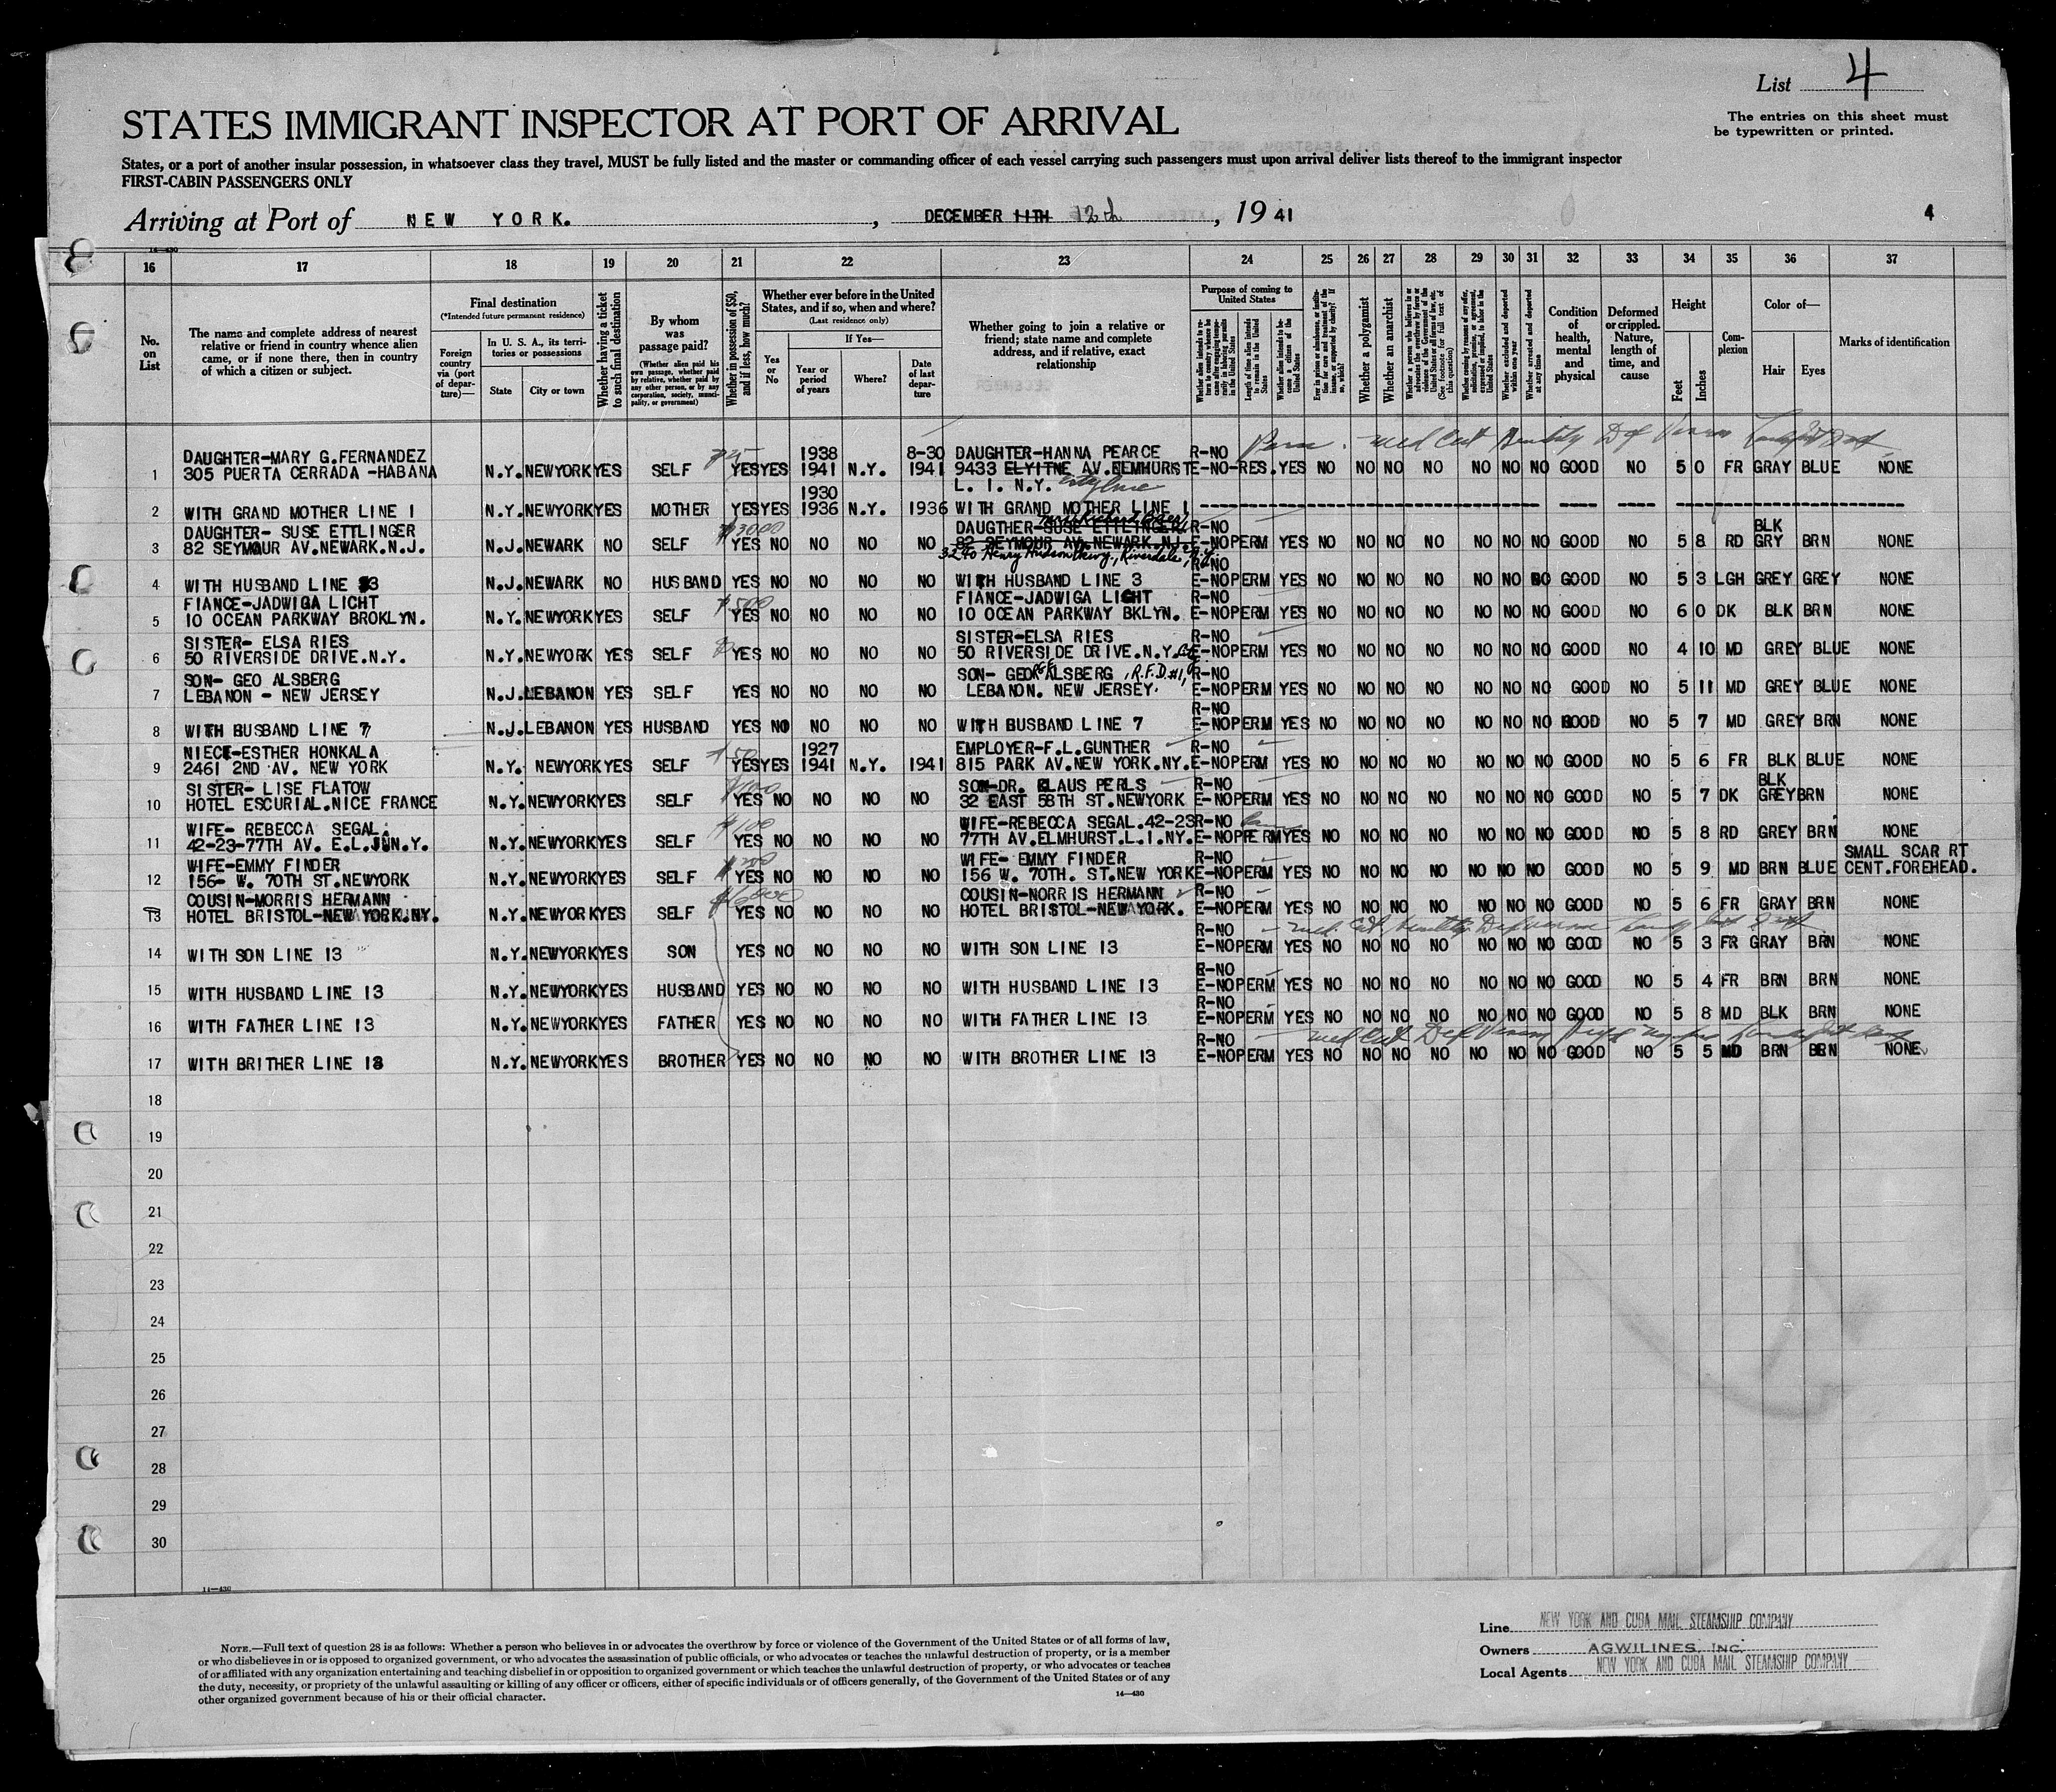 List 4
The entries on this sheet must
be typewritten or printed.
STATES IMMIGRANT INSPECTOR AT PORT OF ARRIVAL
States, or a port of another insular possession, in whatsoever class they travel, MUST be fully listed and the master or commanding officer of each vessel carrying such passengers must upon arrival deliver lists thereof to the immigrant inspector
FIRST-CABIN PASSENGERS ONLY
Arriving at Port of NEW YORK. , DECEMBER 11TH 12th , 19 41
4
14—430
16 17 18 19 20 21 22 23 24 25 26 27 28 29 30 31 32 33 34 35 36 37
No. on List
The name and complete address of nearest
relative or friend in country whence alien
came, or if none there, then in country
of which a citizen or subject.
Final destination
(*Intended future permanent residence)
Foreign country via (port of departure)—
In U. S. A., its territories or possessions
State
City or town
Whether having a ticket to such final destination
By whom was passage paid?
(Whether alien paid his own passage, whether paid by relative, whether paid by any other person, or by any corporation, society, municipality, or government)
Whether in possession of $50, and if less, how much?
Whether ever before in the United
States, and if so, when and where?
(Last residence only)
Yes or No
If Yes—
Year or period of years
Where?
Date of last departure
Whether going to join a relative or
friend; state name and complete
address, and if relative, exact
relationship
Purpose of coming to
United States
Length of time alien intends to remain in the United States
Whether alien intends to become a citizen of the United States
Whether a polygamist
Whether an anarchist
Whether excluded and deported within one year
Whether arrested and deported at any time
Condition of health, mental and physical
Deformed or crippled. Nature, length of time, and cause
Height
Feet
Inches
Complexion
Color of—
Hair
Eyes
Marks of identification
DAUGHTER-MARY G.FERNANDEZ 1938 8-30 DAUGHTER-HANNA PEARCE R-NO
1 305 PUERTA CERRADA -HABANA N.Y. NEWYORK YES SELF YES YES 1941 N.Y. 1941 9433 ELYITNE AV.ELMHURST E-NO-RES. YES NO NO NO NO NO NO NO GOOD NO 5 0 FR GRAY BLUE NONE
L. I. N.Y.
1930
2 WITH GRAND MOTHER LINE 1 N.Y. NEWYORK YES MOTHER YES YES 1936 N.Y. 1936 WITH GRAND MOTHER LINE 1
DAUGHTER- SUSE ETTLINGER $3000 DAUGTHER-SUSE ETTLINGER R-NO BLK
3 82 SEYMOUR AV.NEWARK.N.J. N.J. NEWARK NO SELF YES NO NO NO NO 82 SEYMOUR AV.NEWARK.N.J. E-NO PERM YES NO NO NO NO NO NO NO GOOD NO 5 8 RD GRY BRN NONE
3240 Henry Hudson Pkwy., Riverdale, N.Y.
R-NO
4 WITH HUSBAND LINE 3 N.J. NEWARK NO HUSBAND YES NO NO NO NO WITH HUSBAND LINE 3 E-NO PERM YES NO NO NO NO NO NO NO GOOD NO 5 3 LGH GREY GREY NONE
FIANCE-JADWIGA LICHT $500 FIANCE-JADWIGA LICHT R-NO
5 10 OCEAN PARKWAY BROKLYN. N.Y. NEWYORK YES SELF YES NO NO NO NO 10 OCEAN PARKWAY BKLYN. E-NO PERM YES NO NO NO NO NO NO NO GOOD NO 6 0 DK BLK BRN NONE
SISTER- ELSA RIES SISTER-ELSA RIES R-NO
6 50 RIVERSIDE DRIVE.N.Y. N.Y. NEWYORK YES SELF YES NO NO NO NO 50 RIVERSIDE DRIVE.N.Y. E-NO PERM YES NO NO NO NO NO NO NO GOOD NO 4 10 MD GREY BLUE NONE
SON- GEO ALSBERG SON- GEORGE ALSBERG , R.F.D.#1, R-NO
7 LEBANON - NEW JERSEY N.J. LEBANON YES SELF YES NO NO NO NO LEBANON. NEW JERSEY. E-NO PERM YES NO NO NO NO NO NO NO GOOD NO 5 11 MD GREY BLUE NONE
R-NO
8 WITH BUSBAND LINE 7 N.J. LEBANON YES HUSBAND YES NO NO NO NO WITH BUSBAND LINE 7 E-NO PERM YES NO NO NO NO NO NO NO GOOD NO 5 7 MD GREY BRN NONE
NIECE-ESTHER HONKALA $50 1927 EMPLOYER-F.L.GUNTHER R-NO
9 2461 2ND AV. NEW YORK N.Y. NEWYORK YES SELF YES YES 1941 N.Y. 1941 815 PARK AV.NEW YORK.NY. E-NO PERM YES NO NO NO NO NO NO NO GOOD NO 5 6 FR BLK BLUE NONE
SISTER- LISE FLATOW SON-DR. KLAUS PERLS R-NO BLK
10 HOTEL ESCURIAL.NICE FRANCE N.Y. NEWYORK YES SELF YES NO NO NO NO 32 EAST 58TH ST.NEWYORK E-NO PERM YES NO NO NO NO NO NO NO GOOD NO 5 7 DK GREY BRN NONE
WIFE- REBECCA SEGAL. $100 WIFE-REBECCA SEGAL.42-23 R-NO
11 42-23-77TH AV. E.L.JUN.Y. N.Y. NEWYORK YES SELF YES NO NO NO NO 77TH AV.ELMHURST.L.I.NY. E-NO PERM YES NO NO NO NO NO NO NO GOOD NO 5 8 RD GREY BRN NONE
WIFE-EMMY FINDER WIFE- EMMY FINDER R-NO SMALL SCAR RT
12 156- W. 70TH ST.NEWYORK N.Y. NEWYORK YES SELF YES NO NO NO NO 156 W. 70TH. ST.NEW YORK E-NO PERM YES NO NO NO NO NO NO NO GOOD NO 5 9 MD BRN BLUE CENT.FOREHEAD.
COUSIN-MORRIS HERMANN COUSIN-NORRIS HERMANN R-NO
13 HOTEL BRISTOL-NEW YORK.NY. N.Y. NEWYORK YES SELF YES NO NO NO NO HOTEL BRISTOL-NEW YORK. E-NO PERM YES NO NO NO NO NO NO NO GOOD NO 5 6 FR GRAY BRN NONE
R-NO
14 WITH SON LINE 13 N.Y. NEWYORK YES SON YES NO NO NO NO WITH SON LINE 13 E-NO PERM YES NO NO NO NO NO NO NO GOOD NO 5 3 FR GRAY BRN NONE
R-NO
15 WITH HUSBAND LINE 13 N.Y. NEWYORK YES HUSBAND YES NO NO NO NO WITH HUSBAND LINE 13 E-NO PERM YES NO NO NO NO NO NO NO GOOD NO 5 4 FR BRN BRN NONE
R-NO
16 WITH FATHER LINE 13 N.Y. NEWYORK YES FATHER YES NO NO NO NO WITH FATHER LINE 13 E-NO PERM YES NO NO NO NO NO NO NO GOOD NO 5 8 MD BLK BRN NONE
R-NO
17 WITH BRITHER LINE 13 N.Y. NEWYORK YES BROTHER YES NO NO NO NO WITH BROTHER LINE 13 E-NO PERM YES NO NO NO NO NO NO NO GOOD NO 5 5 MD BRN BRN NONE
18
19
20
21
22
23
24
25
26
27
28
29
30
14—430
NOTE.—Full text of question 28 is as follows: Whether a person who believes in or advocates the overthrow by force or violence of the Government of the United States or of all forms of law,
or who disbelieves in or is opposed to organized government, or who advocates the assassination of public officials, or who advocates or teaches the unlawful destruction of property, or is a member
of or affiliated with any organization entertaining and teaching disbelief in or opposition to organized government or which teaches the unlawful destruction of property, or who advocates or teaches
the duty, necessity, or propriety of the unlawful assaulting or killing of any officer or officers, either of specific individuals or of officers generally, of the Government of the United States or of any
other organized government because of his or their official character.
14—430
Line NEW YORK AND CUBA MAIL STEAMSHIP COMPANY
Owners AGWILINES, INC.
Local Agents NEW YORK AND CUBA MAIL STEAMSHIP COMPANY